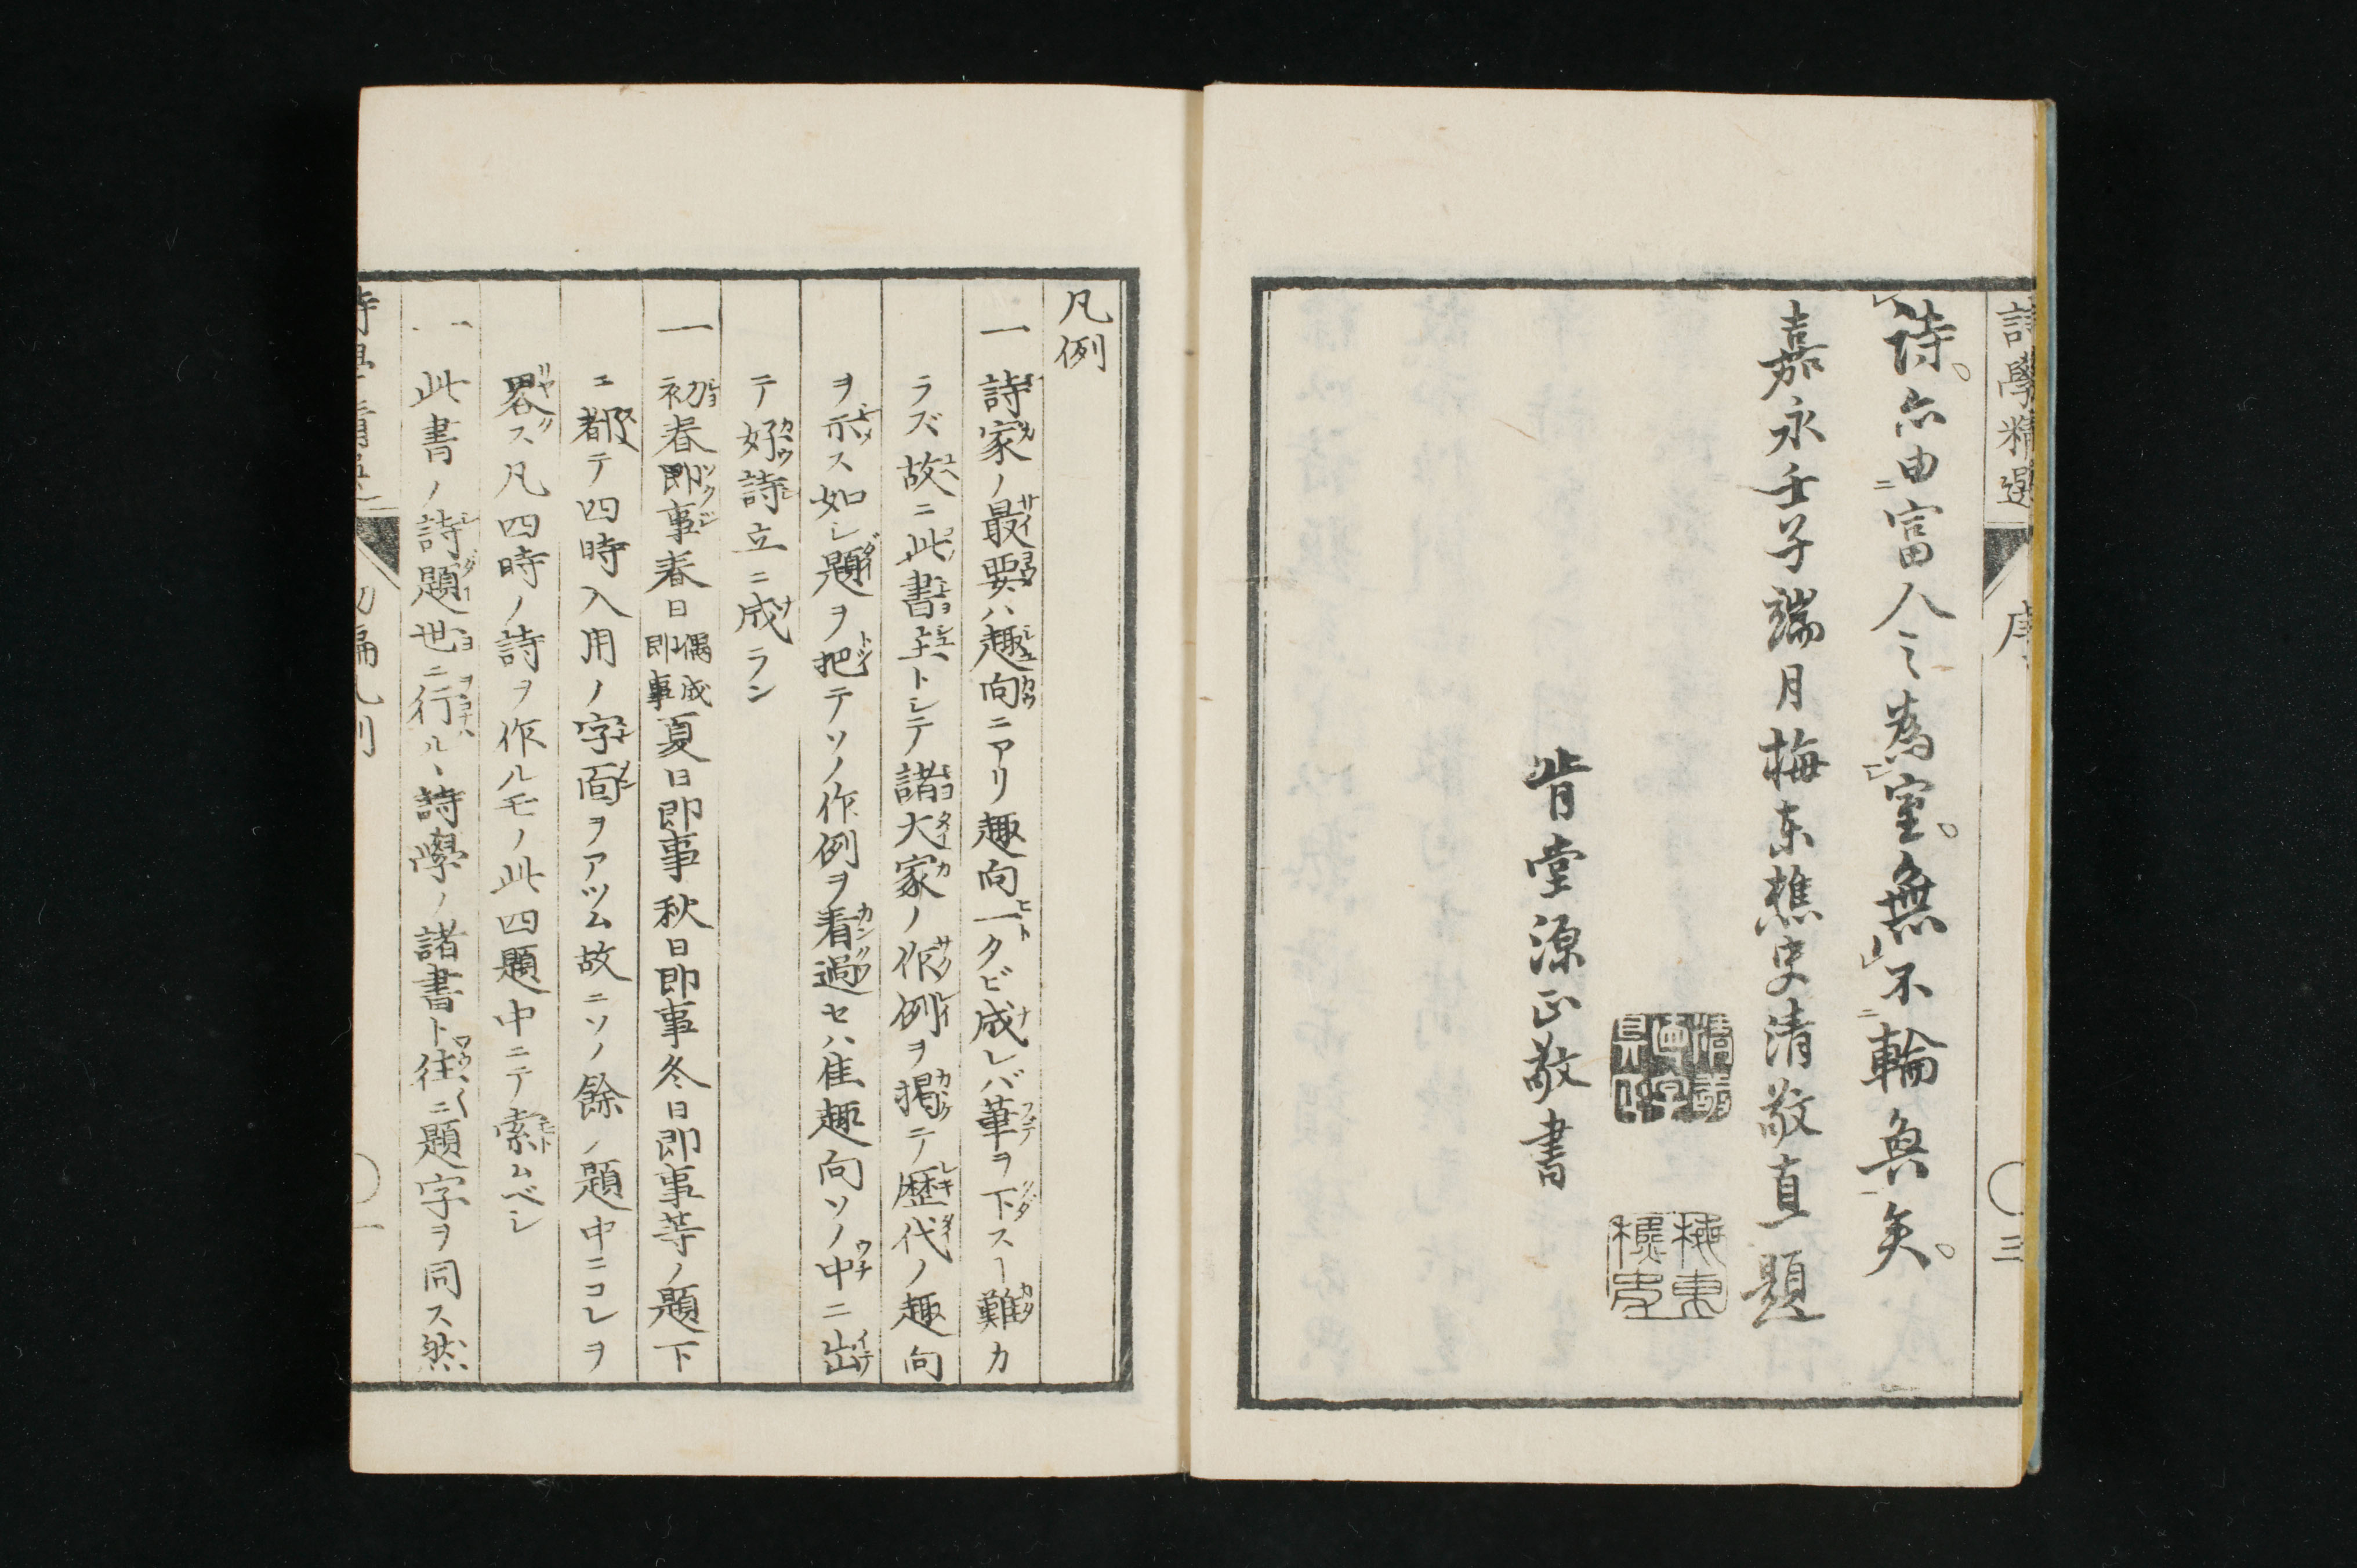 詩學精選
序
三
詩。亦由富人之為室。無不輪奐矣。
嘉永壬子端月梅東樵史清敬直題
梅東樵史
肯堂源正敬書
凡例
一 詩家ノ最要ハ趣向ニアリ趣向一タビ成レバ筆ヲ下スヿ難カ
ラズ故ニ此書主トシテ諸大家ノ作例ヲ掲テ歴代ノ趣向
ヲ示ス如シ題ヲ把テソノ作例ヲ看過セハ佳趣向ソノ中ニ出
テ好詩立ニ成ラン
一 初春即事春日偶成即事夏日即事秋日即事冬日即事等ノ題下
ニ都テ四時入用ノ字面ヲアツム故ニソノ餘ノ題中ニコレヲ
畧ス凡四時ノ詩ヲ作ルモノ此四題中ニテ索ムベシ
一 此書ノ詩題世ニ行ルヽ詩學ノ諸書ト往〻ニ題字ヲ同ス然